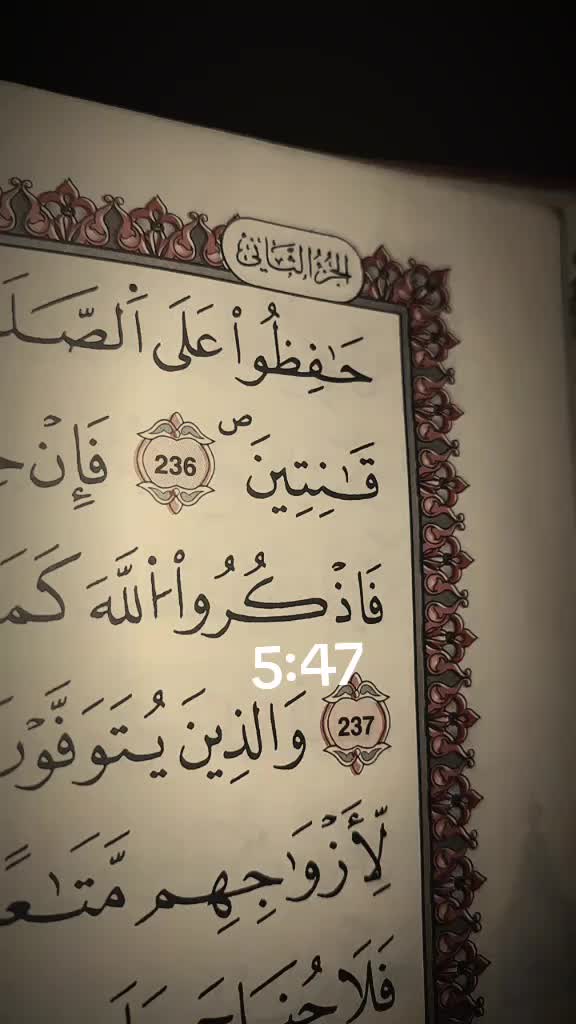 الجزء الثاني
حَـٰفِظُوا۟ عَلَى اَ۬لصَّلَ
قَـٰنِتِينَ ۖ 236 فَإِنْ
فَاذْكُرُوا۟ اُ۬للَّهَ كَمَ
5:47
237 وَالذِينَ يُتَوَفَّوْ
لِّأَزْوَٰجِهِم مَّتَـٰعً
فَلَا جُنَاحَ عَلَ